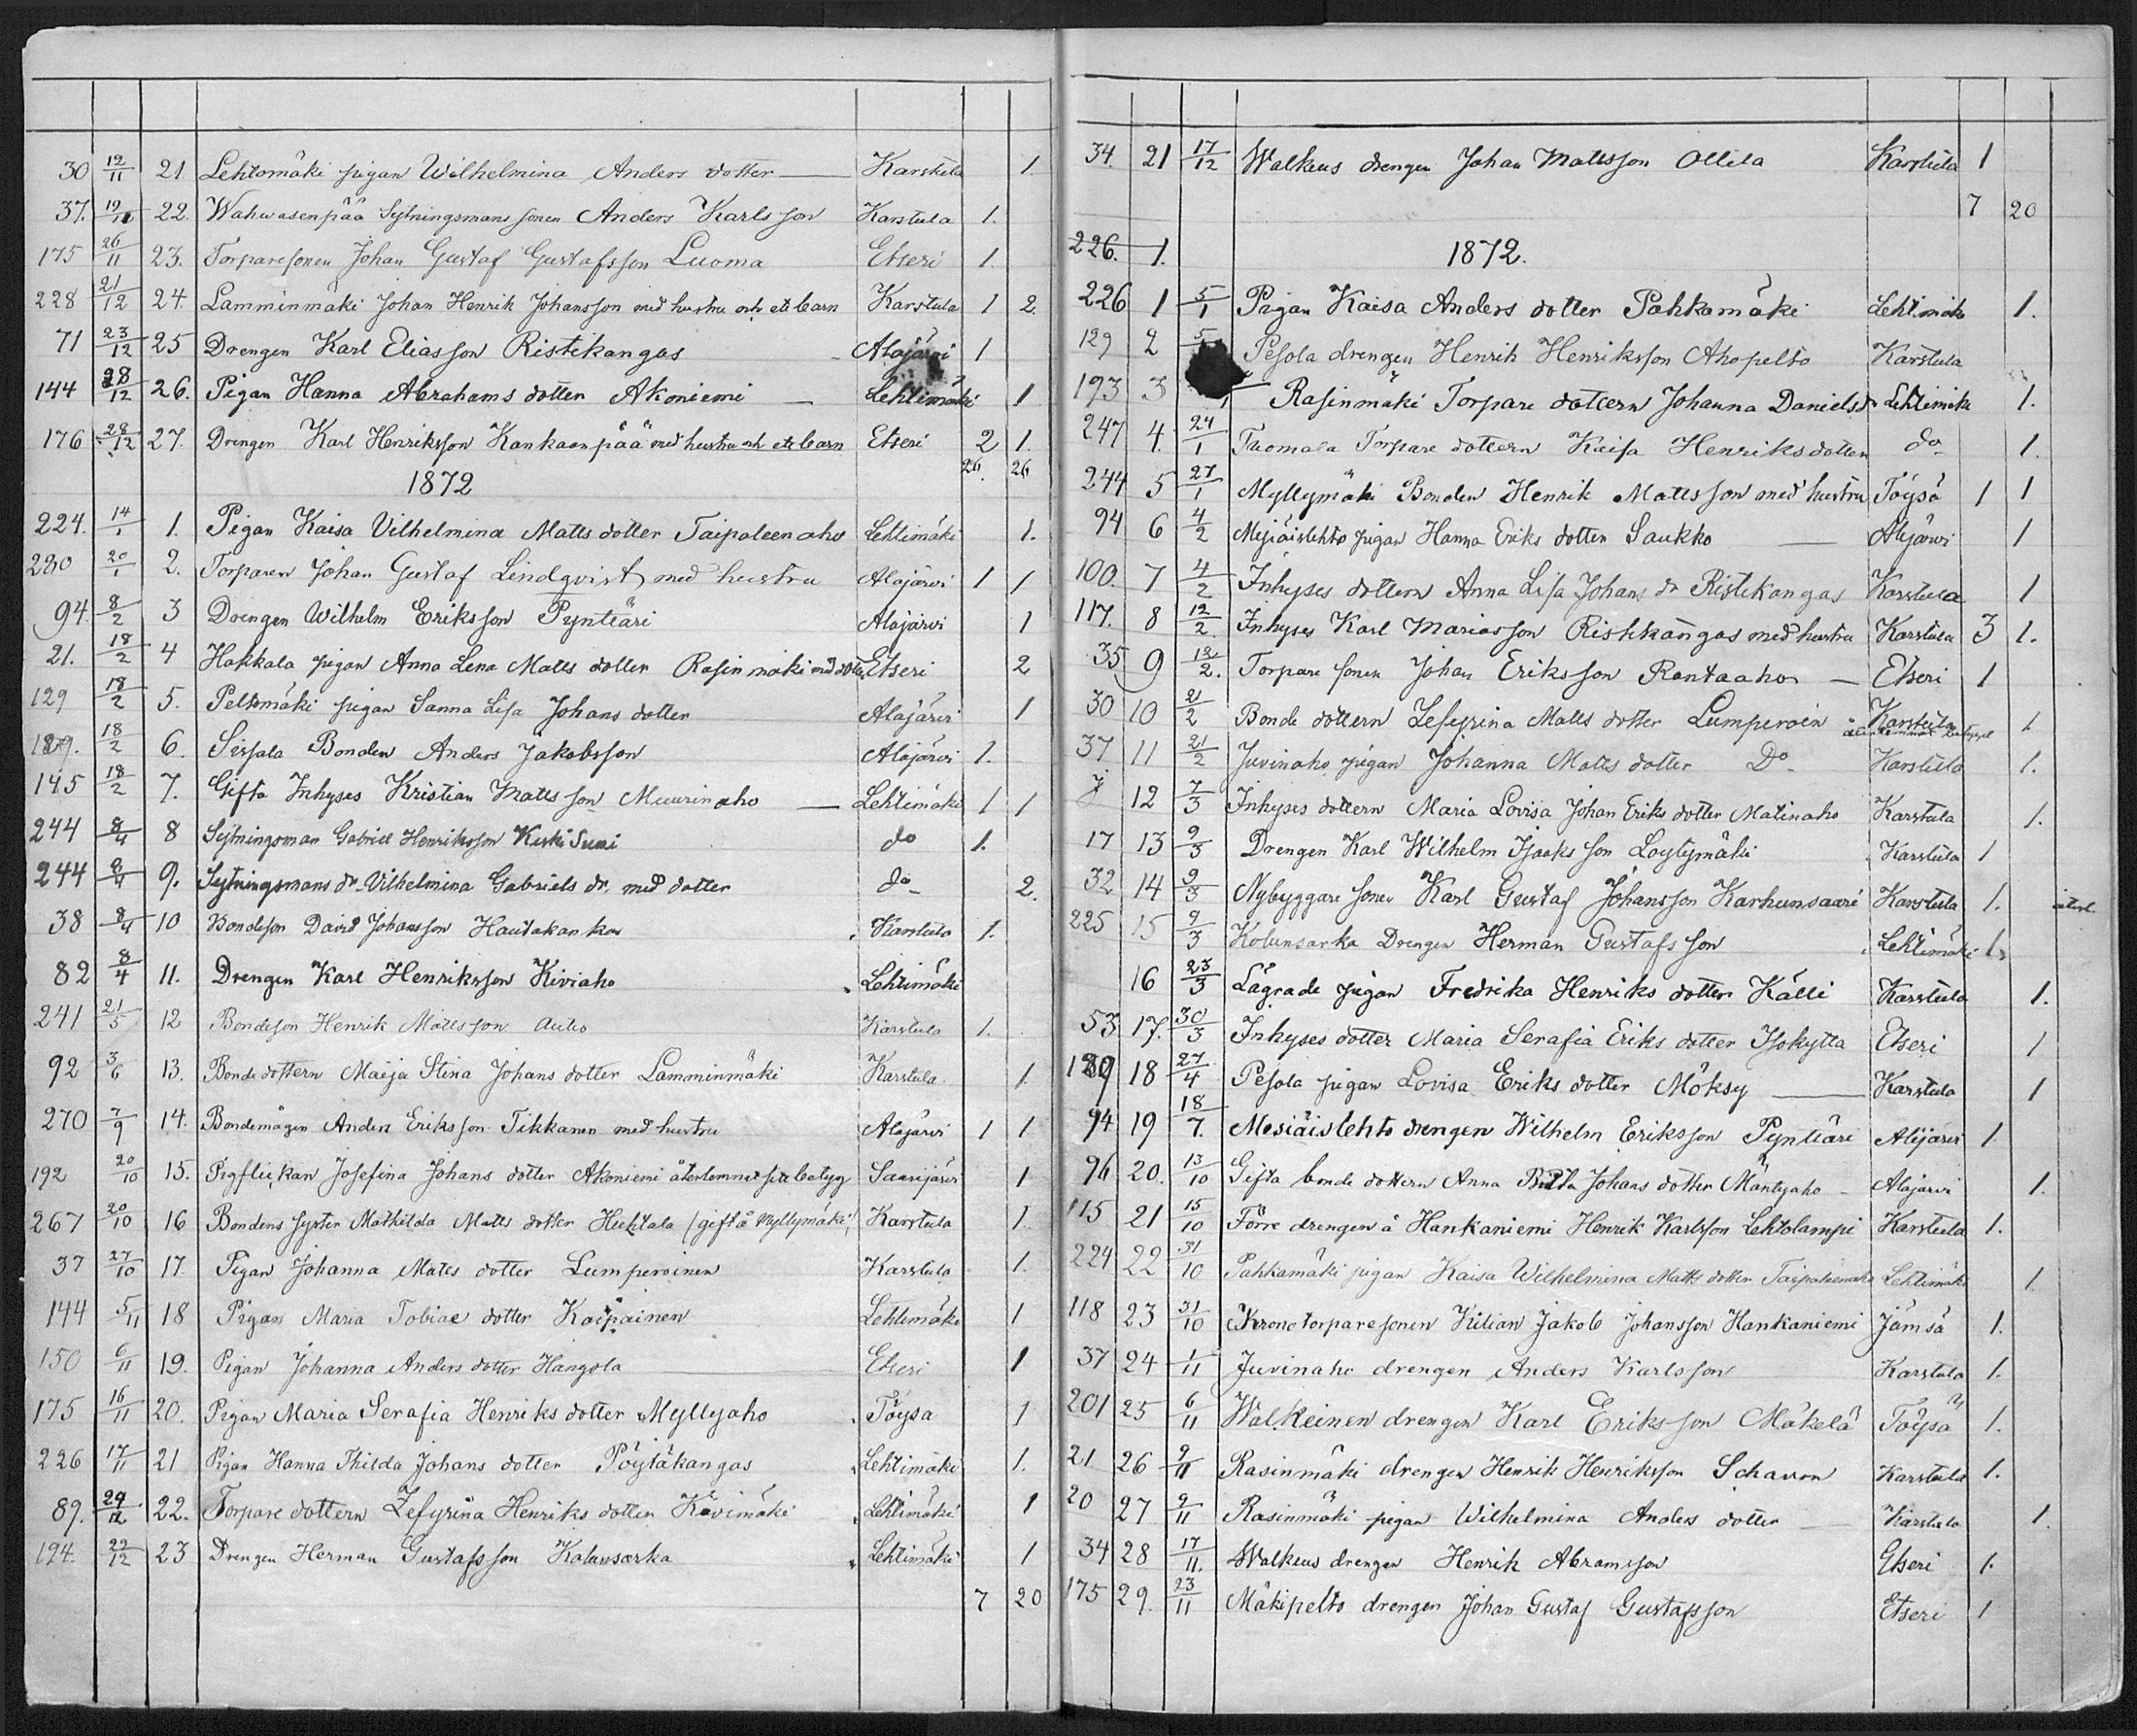 30 12/11 21. Lehtomäki pigan Wilhelmina Anders dotter — Karstula 1.
37. 19/10 22. Wahwasenpää Sytningsmans sonen Anders Karlsson Karstula 1.
175 26/11 23. Torparesonen Johan Gustaf Gustafsson Luoma Etseri 1.
228 21/12 24. Lamminmäki Johan Henrik Johansson med hustru och ett barn Karstula 1 2.
71 23/12 25 Drengen Karl Eliasson Ristikangas Alajärvi 1
144 28/12 26. Pigan Hanna Abrahams dotter Akoniemi — Lehtimäki 1
176 28/12 27. Drengen Karl Henriksson Kankaanpää med hustru och ett barn Etseri 2 1.
26. 26
1872
224. 14/1 1. Pigan Kaisa Vilhelmina Matts dotter Taipaleenaho Lehtimäki 1.
230 20/1 2. Torparen Johan Gustaf Lindqvist med hustru Alajärvi 1 1
94. 8/2 3 Drengen Wilhelm Eriksson Pyntäri Alajärvi 1
21. 18/2 4 Hakkala pigan Anna Lena Matts dotter Rasinmäki med dotter Etseri 2
129 18/2 5. Peltomäki pigan Sanna Lisa Johans dotter Alajärvi 1
189. 18/2 6. Sissala Bonden Anders Jakobsson Alajärvi 1.
145 18/2 7. Gifta Inhyses Kristian Mattsson Muurinaho — Lehtimäki 1 1
244 8/4 8 Sytningsman Gabriel Henriksson Keski Sumi do 1.
244 8/4 9. Sytningsmans dr. Vilhelmina Gabriels dr. med dotter do 2.
38 8/4 10 Bondeson David Johansson Hautakankas Karstula 1.
82 8/4 11. Drengen Karl Henriksson Kiviaho Lehtimäki
241 21/5 12 Bondeson Henrik Mattsson Autio Karstula 1.
92 3/6 13. Bonde dottern Maija Stina Johans dotter Lamminmäki Karstula. 1
270 7/9 14. Bondemågen Anders Eriksson Tikkanen med hustru Alajärvi 1 1
192 20/10 15. Pigflickan Josefina Johans dotter Akoniemi återlemnat sitt betyg Saarijärvi 1
267 20/10 16 Bondens syster Mathilda Matts dotter Huhtala (gift å Myllymäki) Karstula 1.
37 27/10 17. Pigan Johanna Matts dotter Lumperoinen Karstula 1.
144 5/11 18 Pigan Maria Tobiae dotter Kaipainen Lehtimäki 1
150 6/11 19. Pigan Johanna Anders dotter Hangola Etseri 1
175 16/11 20. Pigan Maria Serafia Henriks dotter Myllyaho Töysa 1
226 17/11 21 Pigan Hanna Thilda Johans dotter Pöytäkangas Lehtimäki 1.
89. 29/12 22. Torpare dottern Zefyrina Henriks dotter Kivimäki Lehtimäki 1
194. 29/12 23 Drengen Herman Gustafsson Kolunsarka Lehtimäki 1
7 20
34. 21 17/12 Walkeus drengen Johan Mattsson Ollila Karstula 1
7 20
226. 1.
1872.
226 1 5/1 Pigan Kaisa Anders dotter Pahkamäki Lehtimäki 1.
129 2 5 Pesola drengen Henrik Henriksson Ahopelto Karstula
193 3 Rasinmäki Torpare dottern Johanna Danielsdr Lehtimäki 1.
247 4. 24/1 Tuomala Torpare dottern Kaisa Henriksdotter do 1.
244 5 27/1 Myllymäki Bonden Henrik Mattsson med hustru Töysä 1 1
94 6 4/2 Mesiäislehto pigan Hanna Eriks dotter Saukko — Alajärvi 1
100. 7 4/2 Inhyses dottern Anna Lisa Johans dr Ristikangas Karstula 1
117. 8 12/2. Inhyses Karl Mariasson Ristikangas med hustru Karstula 3 1.
35 9 18/2. Torpare sonen Johan Eriksson Rantaaho — Etseri 1
30 10 21/2 Bonde dottern Zefyrina Matts dotter Lumperoin Karstula 1
37 11 21/2 Juvinaho pigan Johanna Matts dotter Do Karstula 1.
12 7/3 Inhyses dottern Maria Lovisa Johan Eriks dotter Matinaho Karstula 1.
17 13 9/3 Drengen Karl Wilhelm Isaaks son Löytymäki Karstula 1
32 14 9/3 Nybyggare sonen Karl Gustaf Johansson Karhunsaari Karstula 1.
225 15 9/3 Kolunsarka Drengen Herman Gustafsson Lehtimäki 1.
16 23/3 Lägrade pigan Fredrika Henriks dotter Källi Karstula 1.
53 17. 30/3 Inhyses dotter Maria Serafia Eriks dotter Isokytta Etseri 1
129 18 27/4 Pesola pigan Lovisa Eriks dotter Möksy — Karstula 1
94 19 18/7. Mesiäislehto drengen Wilhelm Eriksson Pyntäri Alajärvi 1
96 20. 13/10 Gifta bonde dottern Anna Britta Johans dotter Mäntyaho Alajärvi 1.
115 21 15/10 Förre drengen å Hankaniemi Henrik Karlsson Lehtolampi Karstula 1.
224 22 31/10 Pahkamäki pigan Kaisa Wilhelmina Matts dotter Taipaleenaho Lehtimäki 1.
118 23 31/10 Kronotorparesonen Kilian Jakob Johansson Hankaniemi Jämsä 1.
37 24 1/11 Juvinaho drengen Anders Karlsson Karstula 1.
201 25 6/11 Walkeinen drengen Karl Eriksson Mäkelä Töysä 1.
21. 26 9/11 Rasinmäki drengen Henrik Henriksson Schavon Karstula 1.
20 27 9/11 Rasinmäki pigan Wilhelmina Anders dotter — Karstula 1.
34 28 17/11. Walkeus drengen Henrik Abramsson Etseri 1.
175 29. 23/11 Mäkipelto drengen Johan Gustaf Gustafsson Etseri 1